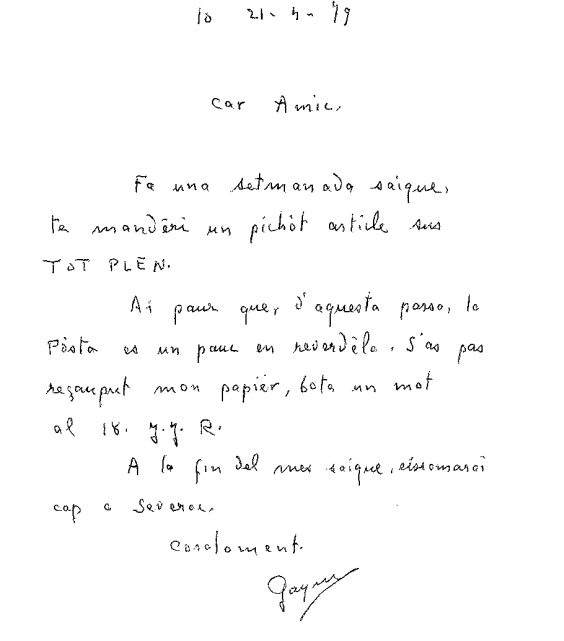 lo 21-4-79
Car Amic,
Fa una setmanada saique,
te mandèri un pichòt article sus
TOT PLEN.
Ai paur que, d'aquesta passa, la
Pòsta es un pauc en reverdèla. S'as pas
reçauput mon papièr, bota un mot
al 18. J.J. R.
A la fin del mes saique, eissamarai
cap a Severac.
Coralament.